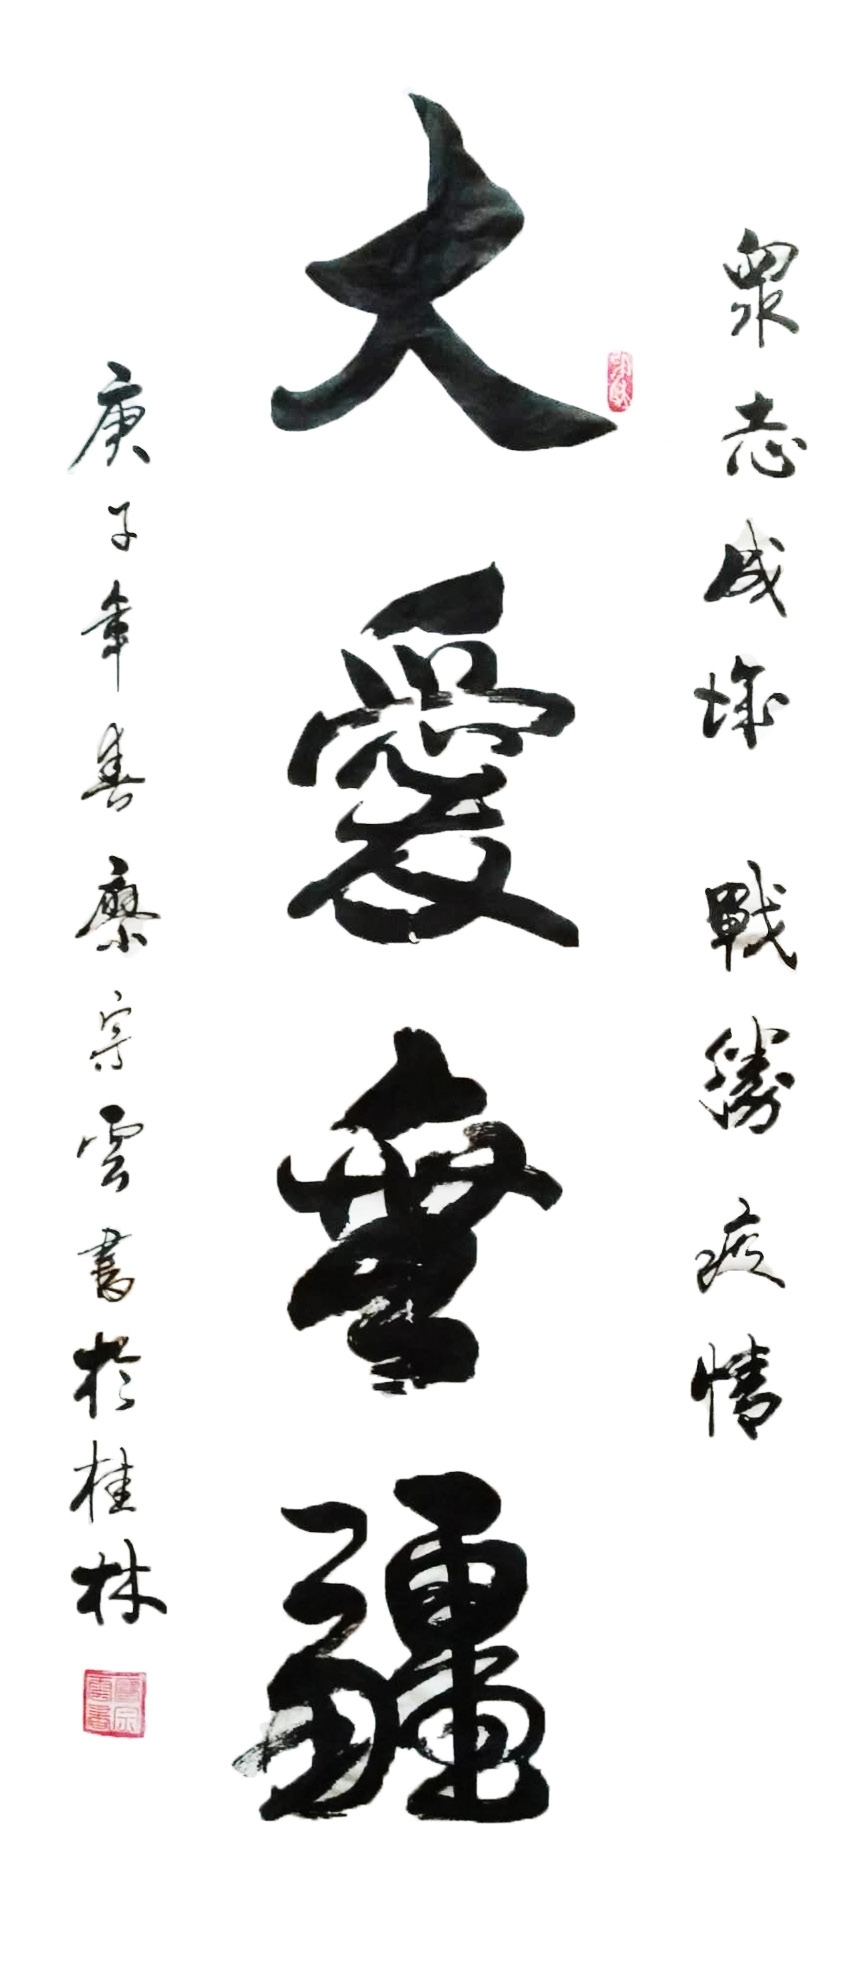 眾志成城 戰勝疫情
大愛無疆
庚子年春宗雲書於桂林